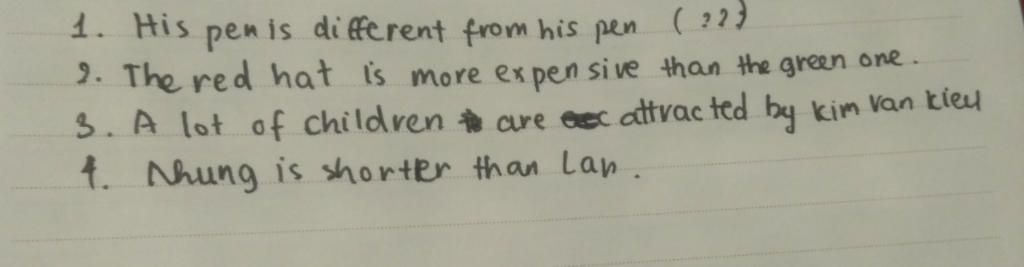 1. His pen is different from his pen (???)
2. The red hat is more expensive than the green one.
3. A lot of children are attracted by kim van kieu
4. Nhung is shorter than Lan.